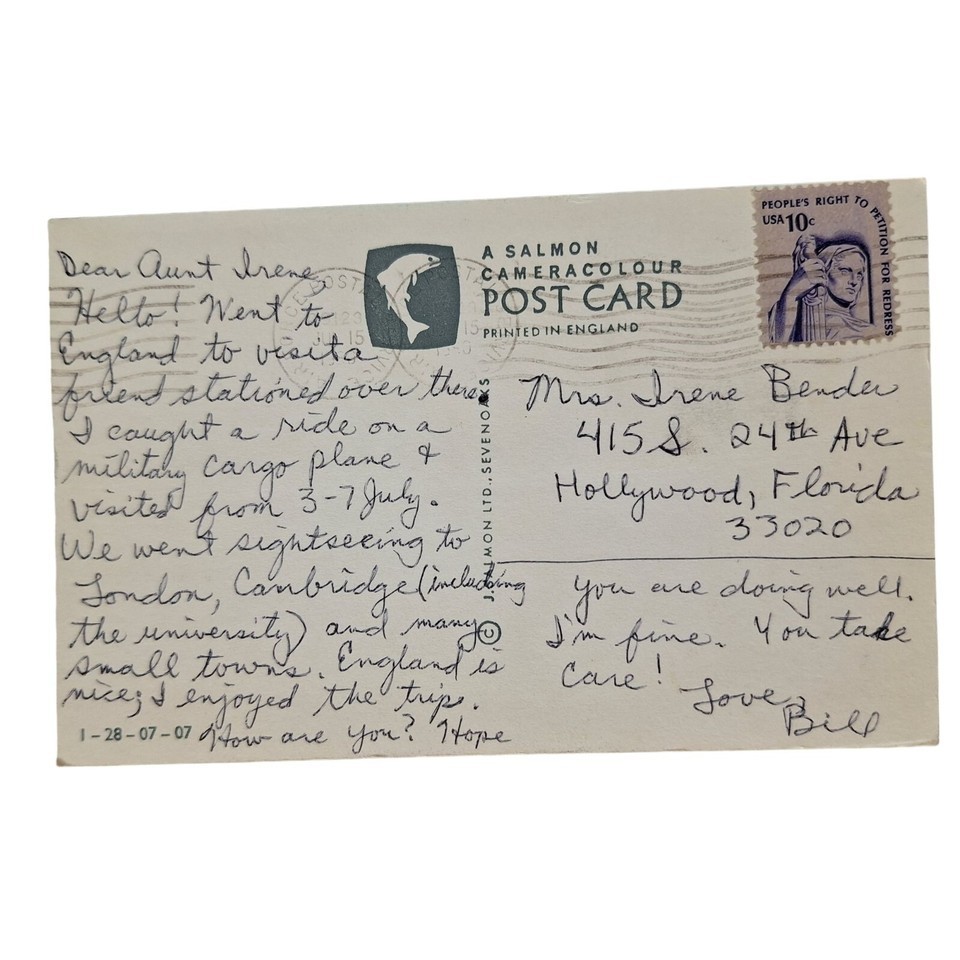 Dear Aunt Irene
Hello! Went to
England to visit a
friend stationed over there.
I caught a ride on a
military cargo plane &
visited from 3-7 July.
We went sightseeing to
London, Canbridge (including
the university) and many
small towns. England is
nice; I enjoyed the trip.
How are you? Hope
you are doing well.
I'm fine. You take
care!
Love,
Bill
1-28-07-07
A SALMON
CAMERACOLOUR
POST CARD
PRINTED IN ENGLAND
© J. SALMON LTD., SEVENOAKS
PEOPLE'S RIGHT TO PETITION FOR REDRESS
USA 10c
Mrs. Irene Bender
415 S. 24th Ave
Hollywood, Florida
33020
JUL 15